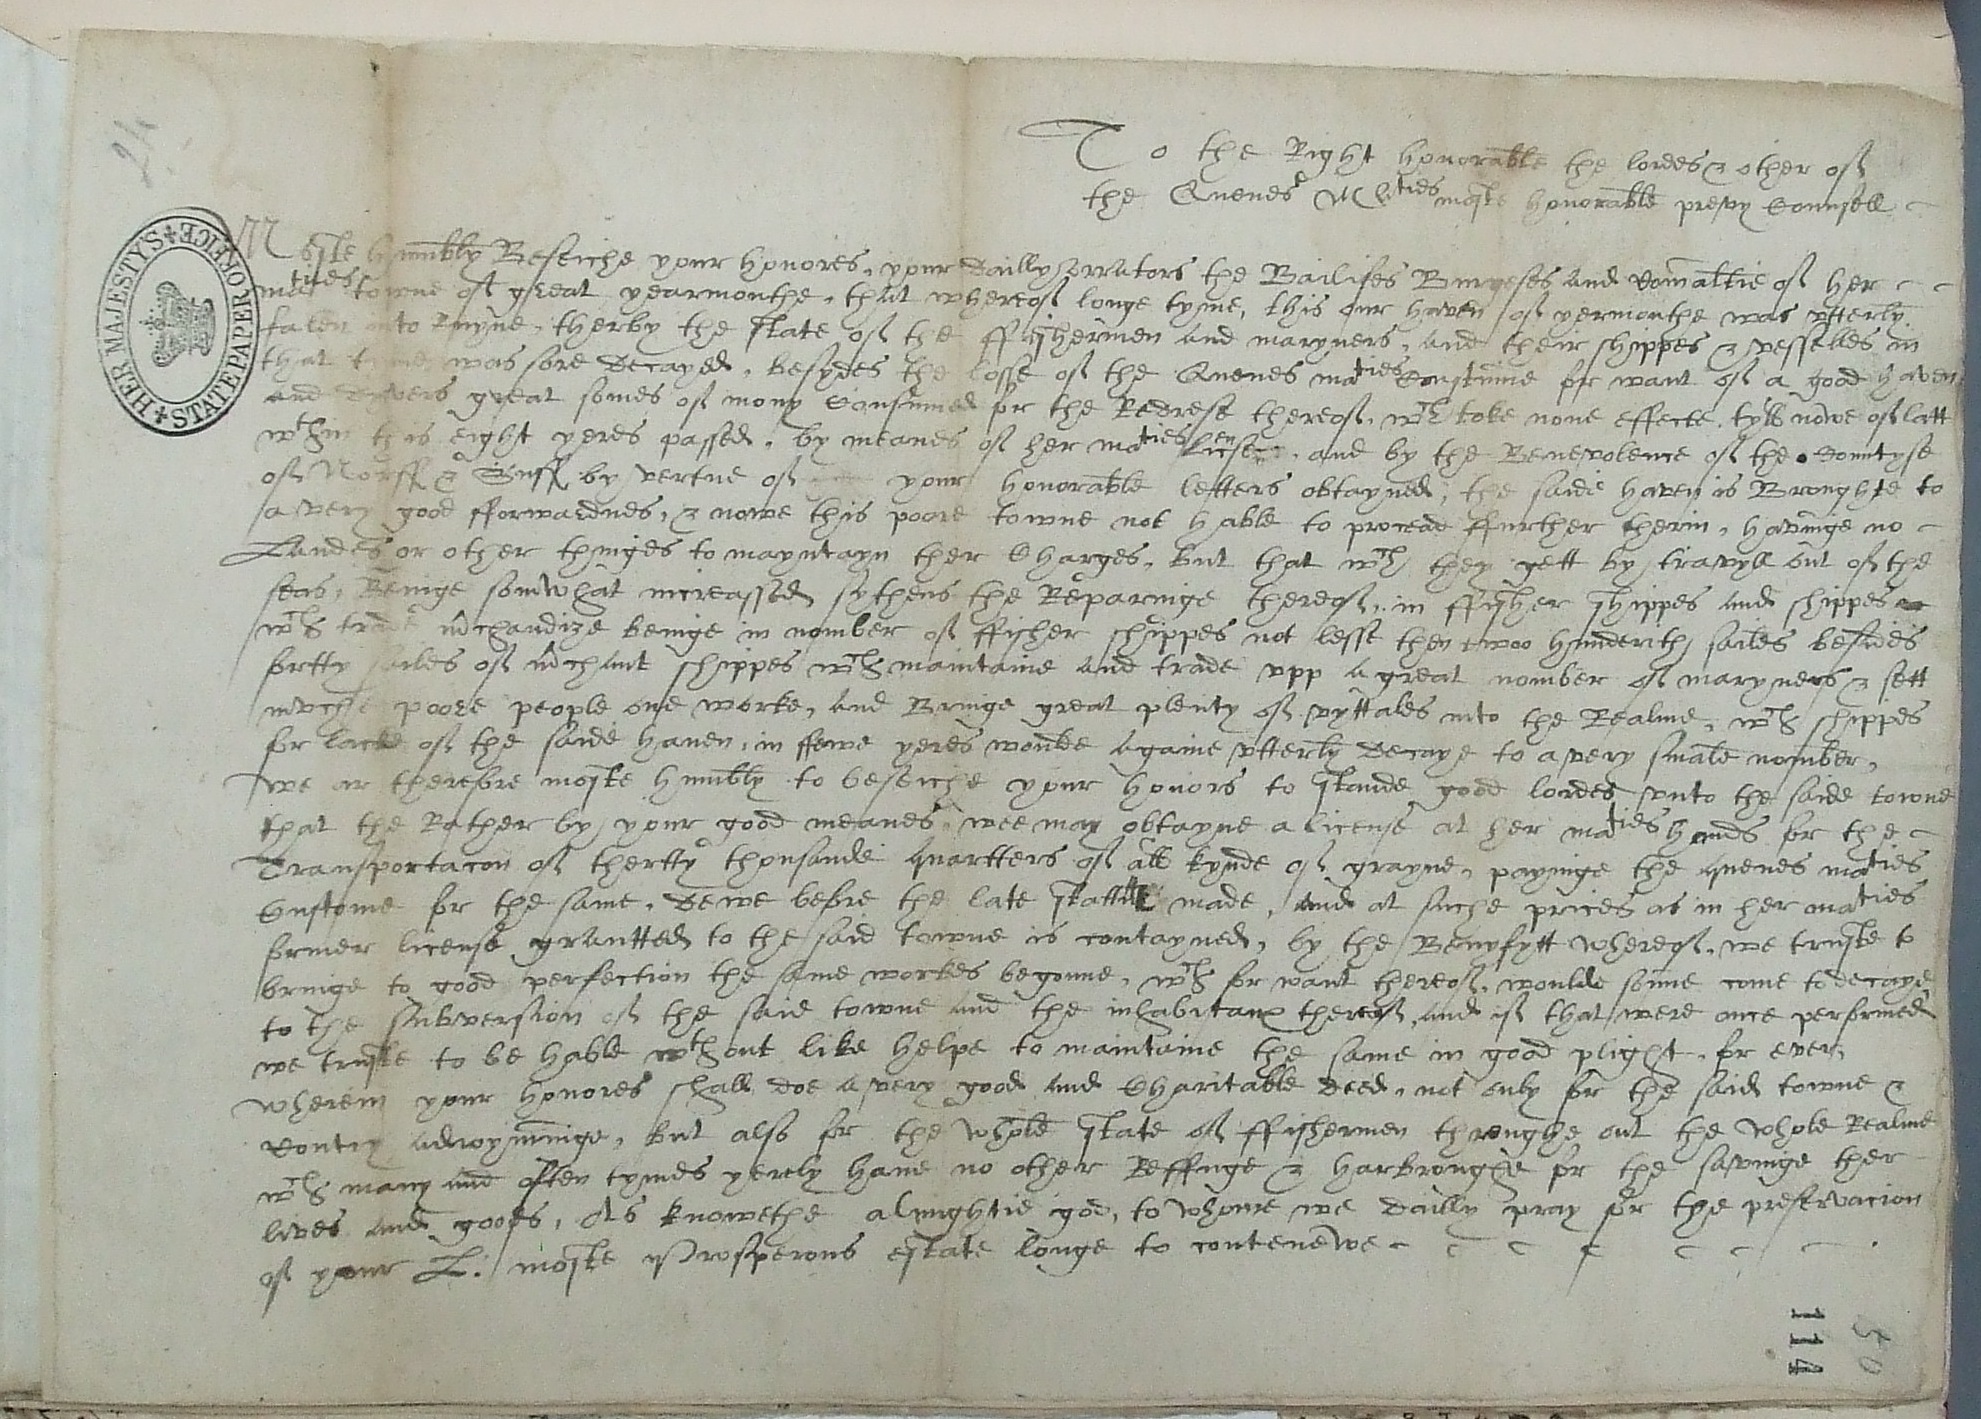 24
HER MAJESTYS STATE PAPER OFFICE
To the Right honorable the lordes & other of
the Quenes Maties moste honorable prevy Counsell
Moste humbly Beseiche your honores, your dailly orrators the Bailifes Burgeses and Comaltie of her
maties towne of great yearmouthe, that whereof longe tyme, this our haven of yermouthe was vtterly
falen into Ruyne, therby the state of the ffishermen and maryners, and their shippes & vesselles in
that tyme was sore decayed, besydes the losse of the Quenes maties Custume for want of a good haven
and divers great somes of mony Consumed for the Redrese thereof, wch toke none effecte, tyll nowe of latt
wthin this eight yeres passed, by meanes of her maties licens, and by the Benevolence of the Countyse
of Norff & Suff by vertue of your honorable letters obtayned, the saide haven is Broughte to
a very good fforwardnes, & nowe this poore towne not hable to procead ffurther therin, havinge no
Landes or other thinges to mayntayn ther Charges, but that wch they gett by travyll out of the
seas, Beinge somwhat increassed sythens the Reparinge thereof, in ffisher shippes and shippes
wch trade mchandize beinge in nomber of ffisher shippes not lesse then twoo hunderith sailes besides
fortty sailes of mchant shippes wch maintaine and trade vpp a great nomber of maryners & sett
mvche poore people one worke, and Bringe great plenty of vyttales into the Realme, wch shippes
for lacke of the saide haven, in ffewe yeres woulde againe vtterly decaye to a very smale nomber,
we ar therefore moste humbly to beseiche your honors to stande good lordes vnto the saide towne
that the Rather by your good meanes, wee may obtayne a license at her maties hands for the
Transportacon of thertty thousande quartters of all kynde of grayne, payinge the quenes maties
Custome for the same, dewe before the late stattute made, and at suche prices as in her maties
former license grantted to the said towne is contayned, by the Benyfytt whereof, we truste to
bringe to good perfection the same workes begonne, wch for want thereof, woulde sonne come to decaye
to the subversion of the said towne and the inhabitanx thereof, and if that were once performed
we truste to be hable wthout like helpe to maintaine the same in good plight, for ever,
wherein your honores shall doe a very good and Charitable deed, not only for the said towne &
Contry adioyninge, but also for the whole state of ffishermen throughe out the whole Realme
wch many and often tymes yerely have no other Reffuge & harbroughe for the savinge ther
lives and goodes, As knowethe almightie god, to whome we dailly pray for the preservacion
of your L: moste prosperous estate longe to contenewe
114
50